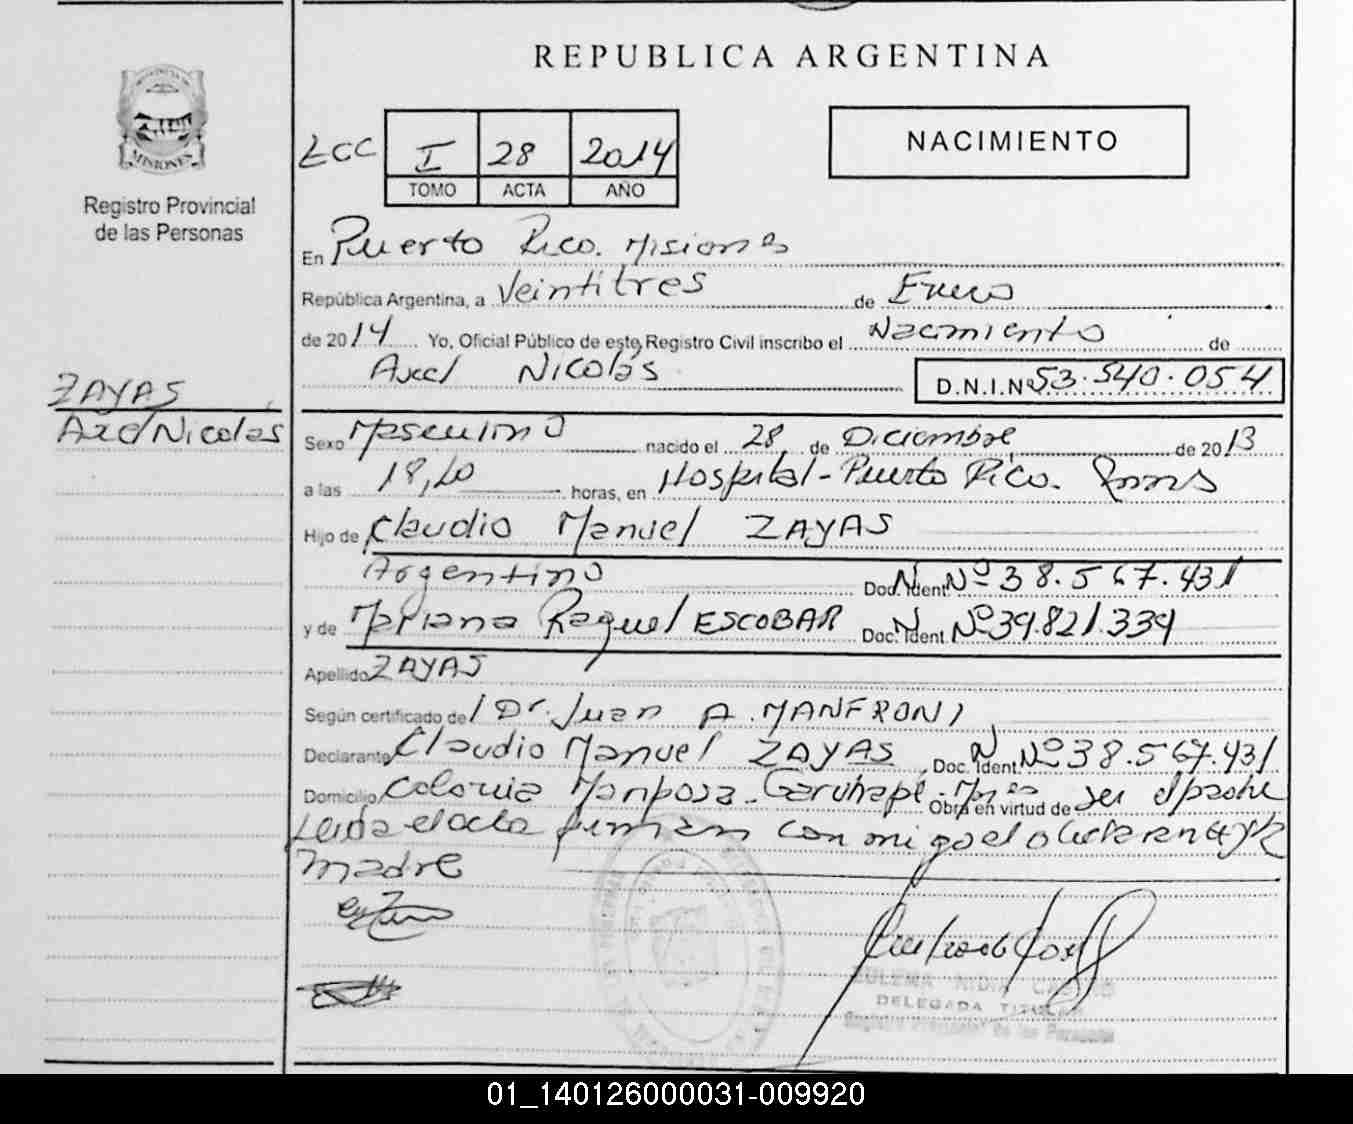 REPUBLICA ARGENTINA
MISIONES
Registro Provincial
de las Personas
Lcc I 28 2014
TOMO ACTA AÑO
NACIMIENTO
En Puerto Rico. Misiones
República Argentina, a Veintitres de Enero
de 2014 Yo, Oficial Público de este Registro Civil inscribo el Nacimiento de
Axel Nicolás D.N.I.Nº 53.540.054
ZAYAS
Axel Nicolas
Sexo Masculino nacido el 28 de Diciembre de 2013
a las 18,10 horas, en Hospital - Puerto Rico.
Hijo de Claudio Manuel ZAYAS
Argentino Doc. Ident. Nº 38.567.431
y de Mariana Raquel ESCOBAR Doc. Ident. Nº 39.821.339
Apellido ZAYAS
Según certificado de Dr. Juan A. MANFRONI
Declarante Claudio Manuel ZAYAS Doc. Ident. Nº 38.567.431
Domicilio Colonia Mariposa - Garuhapé - Mnes Obra en virtud de ser el padre
Leida el acta firman conmigo el declarante y la
madre
ZULEMA NIDIA
DELEGADA TITULAR
Registro Provincial de las Personas
01_140126000031-009920